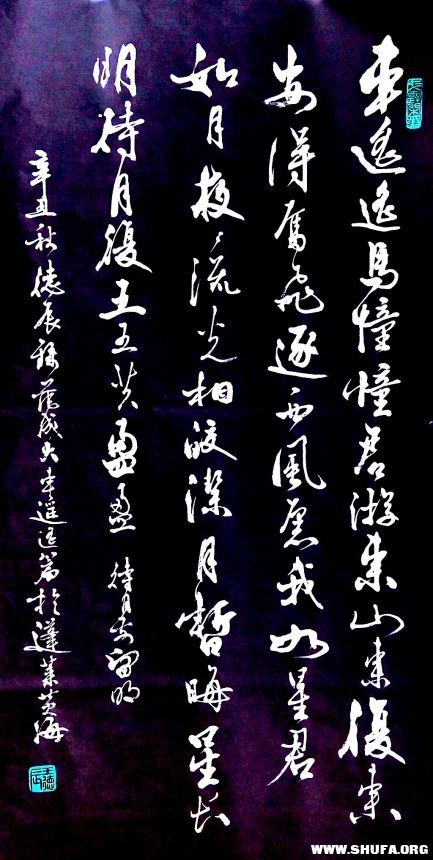 車遙遙馬憧憧君游東山東復東
安得奮飛逐西風愿我如星君
如月夜々流光相皎潔月暫晦星長
明待月復三五共盈盈 待月前留明
辛丑秋德辰錄范成大車遙遙篇於蓬萊黃海
WWW.SHUFA.ORG